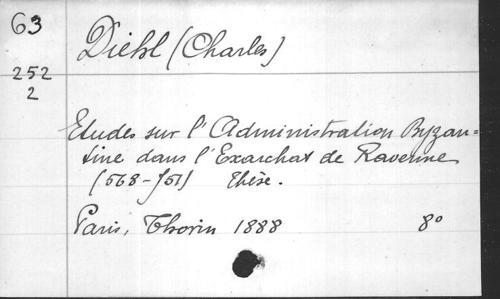 63
Diehl (Charles)
252
2
Etudes sur l'Administration Byzan=
tine dans l'Exarchat de Ravenne
(568-751) Thèse.
Paris, Thorin 1888 8°